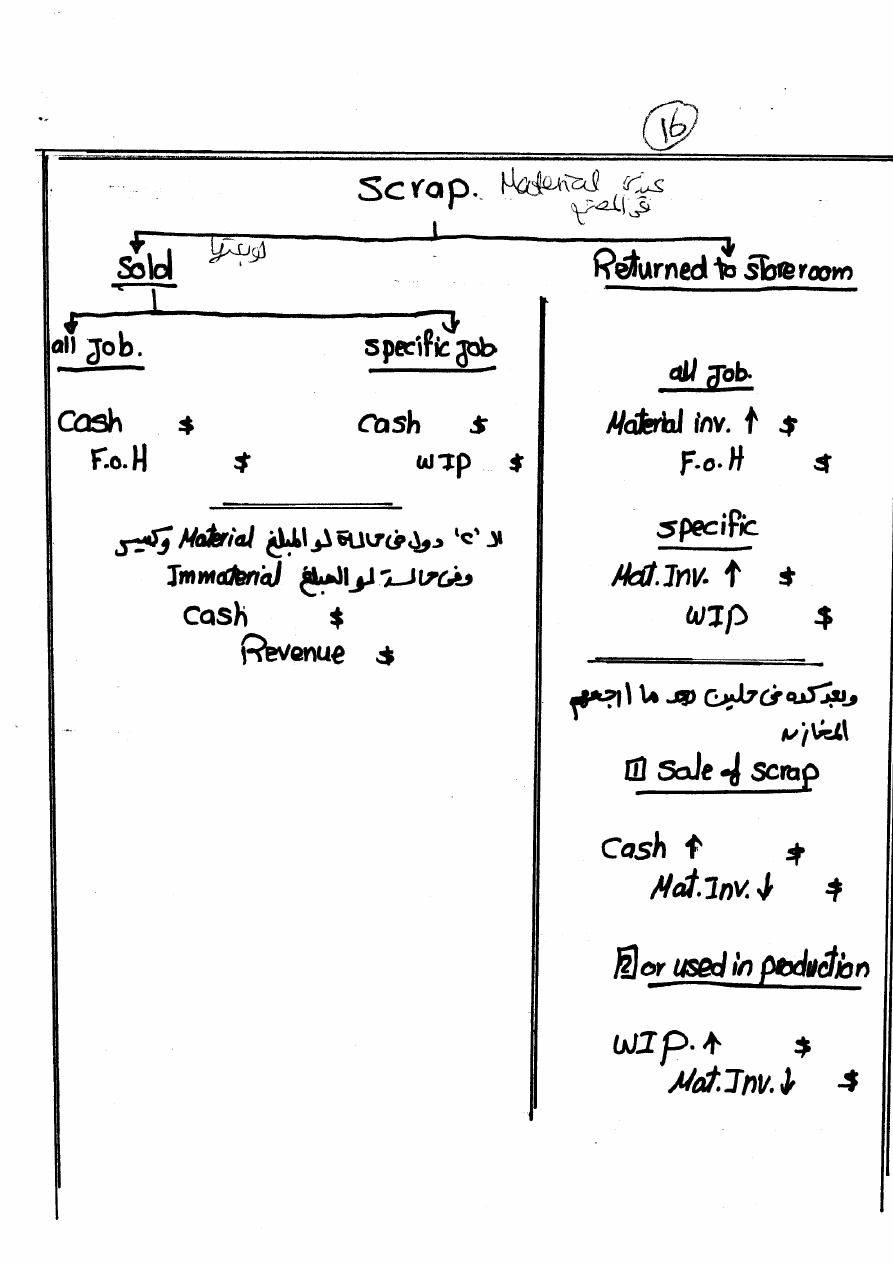 16
Scrap. Material
فى المصنع
لو بعتها
Sold
all Job.
Cash $
F.o.H $
specific job
Cash $
WIP $
الـ '2' دول فى حالة لو المبلغ Material وكبير
وفى حالة لو المبلغ Immaterial
Cash $
Revenue $
Returned to storeroom
all Job.
Material inv. ↑ $
F.o.H $
specific
Mat. Inv. ↑ $
WIP $
وبعد كده فى حلين بعد ما ارجعهم
المخازن
1 Sale of scrap
Cash ↑ $
Mat. Inv. ↓ $
2 or used in production
WIP. ↑ $
Mat. Inv. ↓ $